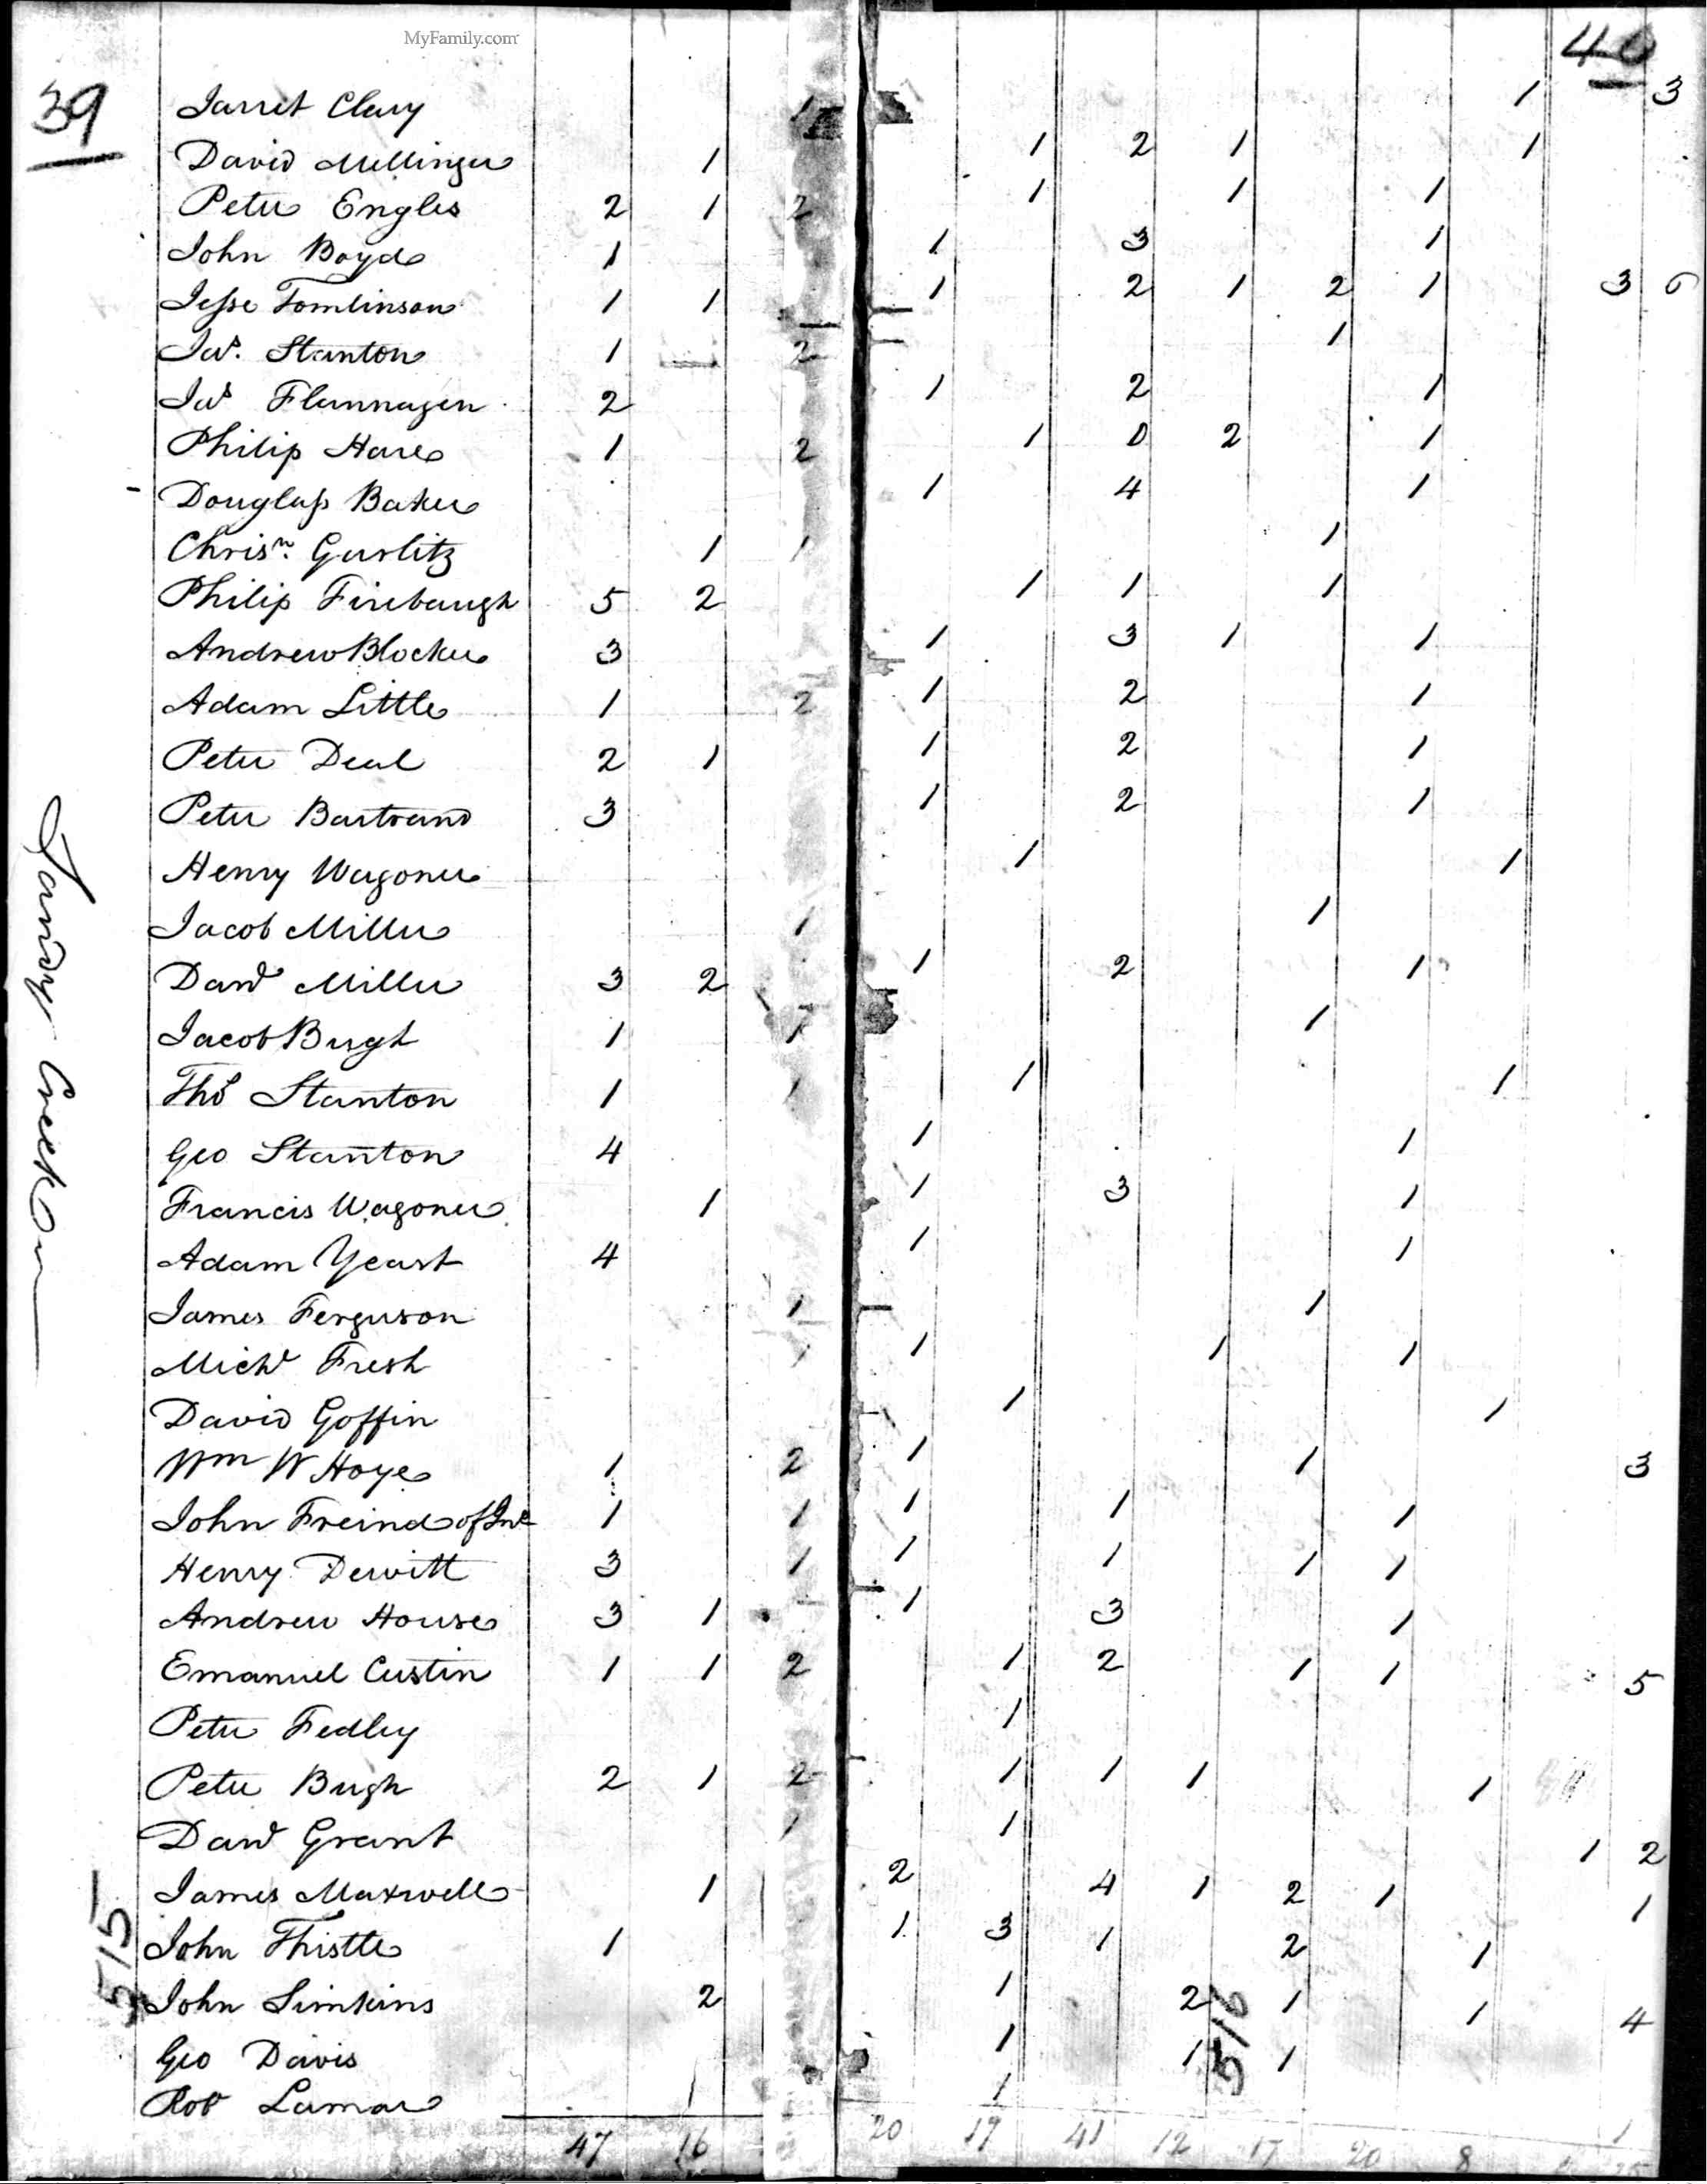 MyFamily.com
39
40
Jarret Clary 1 1 3
David Mellinger 1 1 2 1 1
Peter Engles 2 1 2 1 1 1
John Boyd 1 1 3 1
Jesse Tomlinson 1 1 1 2 1 2 1 3 6
Jas. Stanton 1 2 1
Jas Flannagen 2 1 2 1
Philip Hare 1 2 1 0 2 1
Douglass Baker 1 4 1
Chrisn. Garlitz 1 1 1
Philip Firebaugh 5 2 1 1 1
Andrew Blocker 3 1 3 1 1
Adam Little 1 2 1 2 1
Peter Deal 2 1 1 2 1
Peter Bartrand 3 1 2 1
Henry Wagoner 1 1
Jacob Miller 1 1
Dand Miller 3 2 1 2 1
Jacob Bugh 1 1 1
Thos Stanton 1 1 1 1
Geo Stanton 4 1 1
Francis Wagoner 1 1 3 1
Adam Yeast 4 1 1
James Ferguson 1 1
Michl Fresh 1 1 1 1
David Goffin 1 1
Wm W Hoye 1 2 1 1 3
John Freind of Jno 1 1 1 1 1
Henry Dewitt 3 1 1 1 1 1
Andrew House 3 1 1 3 1
Emanuel Custin 1 1 2 1 2 1 1 5
Peter Fedley 1
Peter Bugh 2 1 2 1 1 1 1
Dand Grant 1 1 1 2
James Maxwell 1 2 4 1 2 1 1
John Thistle 1 1 3 1 2 1
John Simkins 2 1 2 1 1 4
Geo Davis 1 1 1
Rob Lamar 1 1
47 16 20 19 41 12 17 20 8
Sandy Creek
515
516